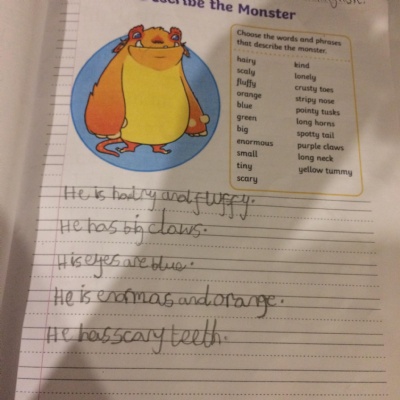 scribe the Monster
Choose the words and phrases
that describe the monster.
hairy
scaly
fluffy
orange
blue
green
big
enormous
small
tiny
scary
kind
lonely
crusty toes
stripy nose
pointy tusks
long horns
spotty tail
purple claws
long neck
yellow tummy
He is hairy and fluffy.
He has big claws.
His eyes are blue.
He is enormas and orange.
He has scary teeth.